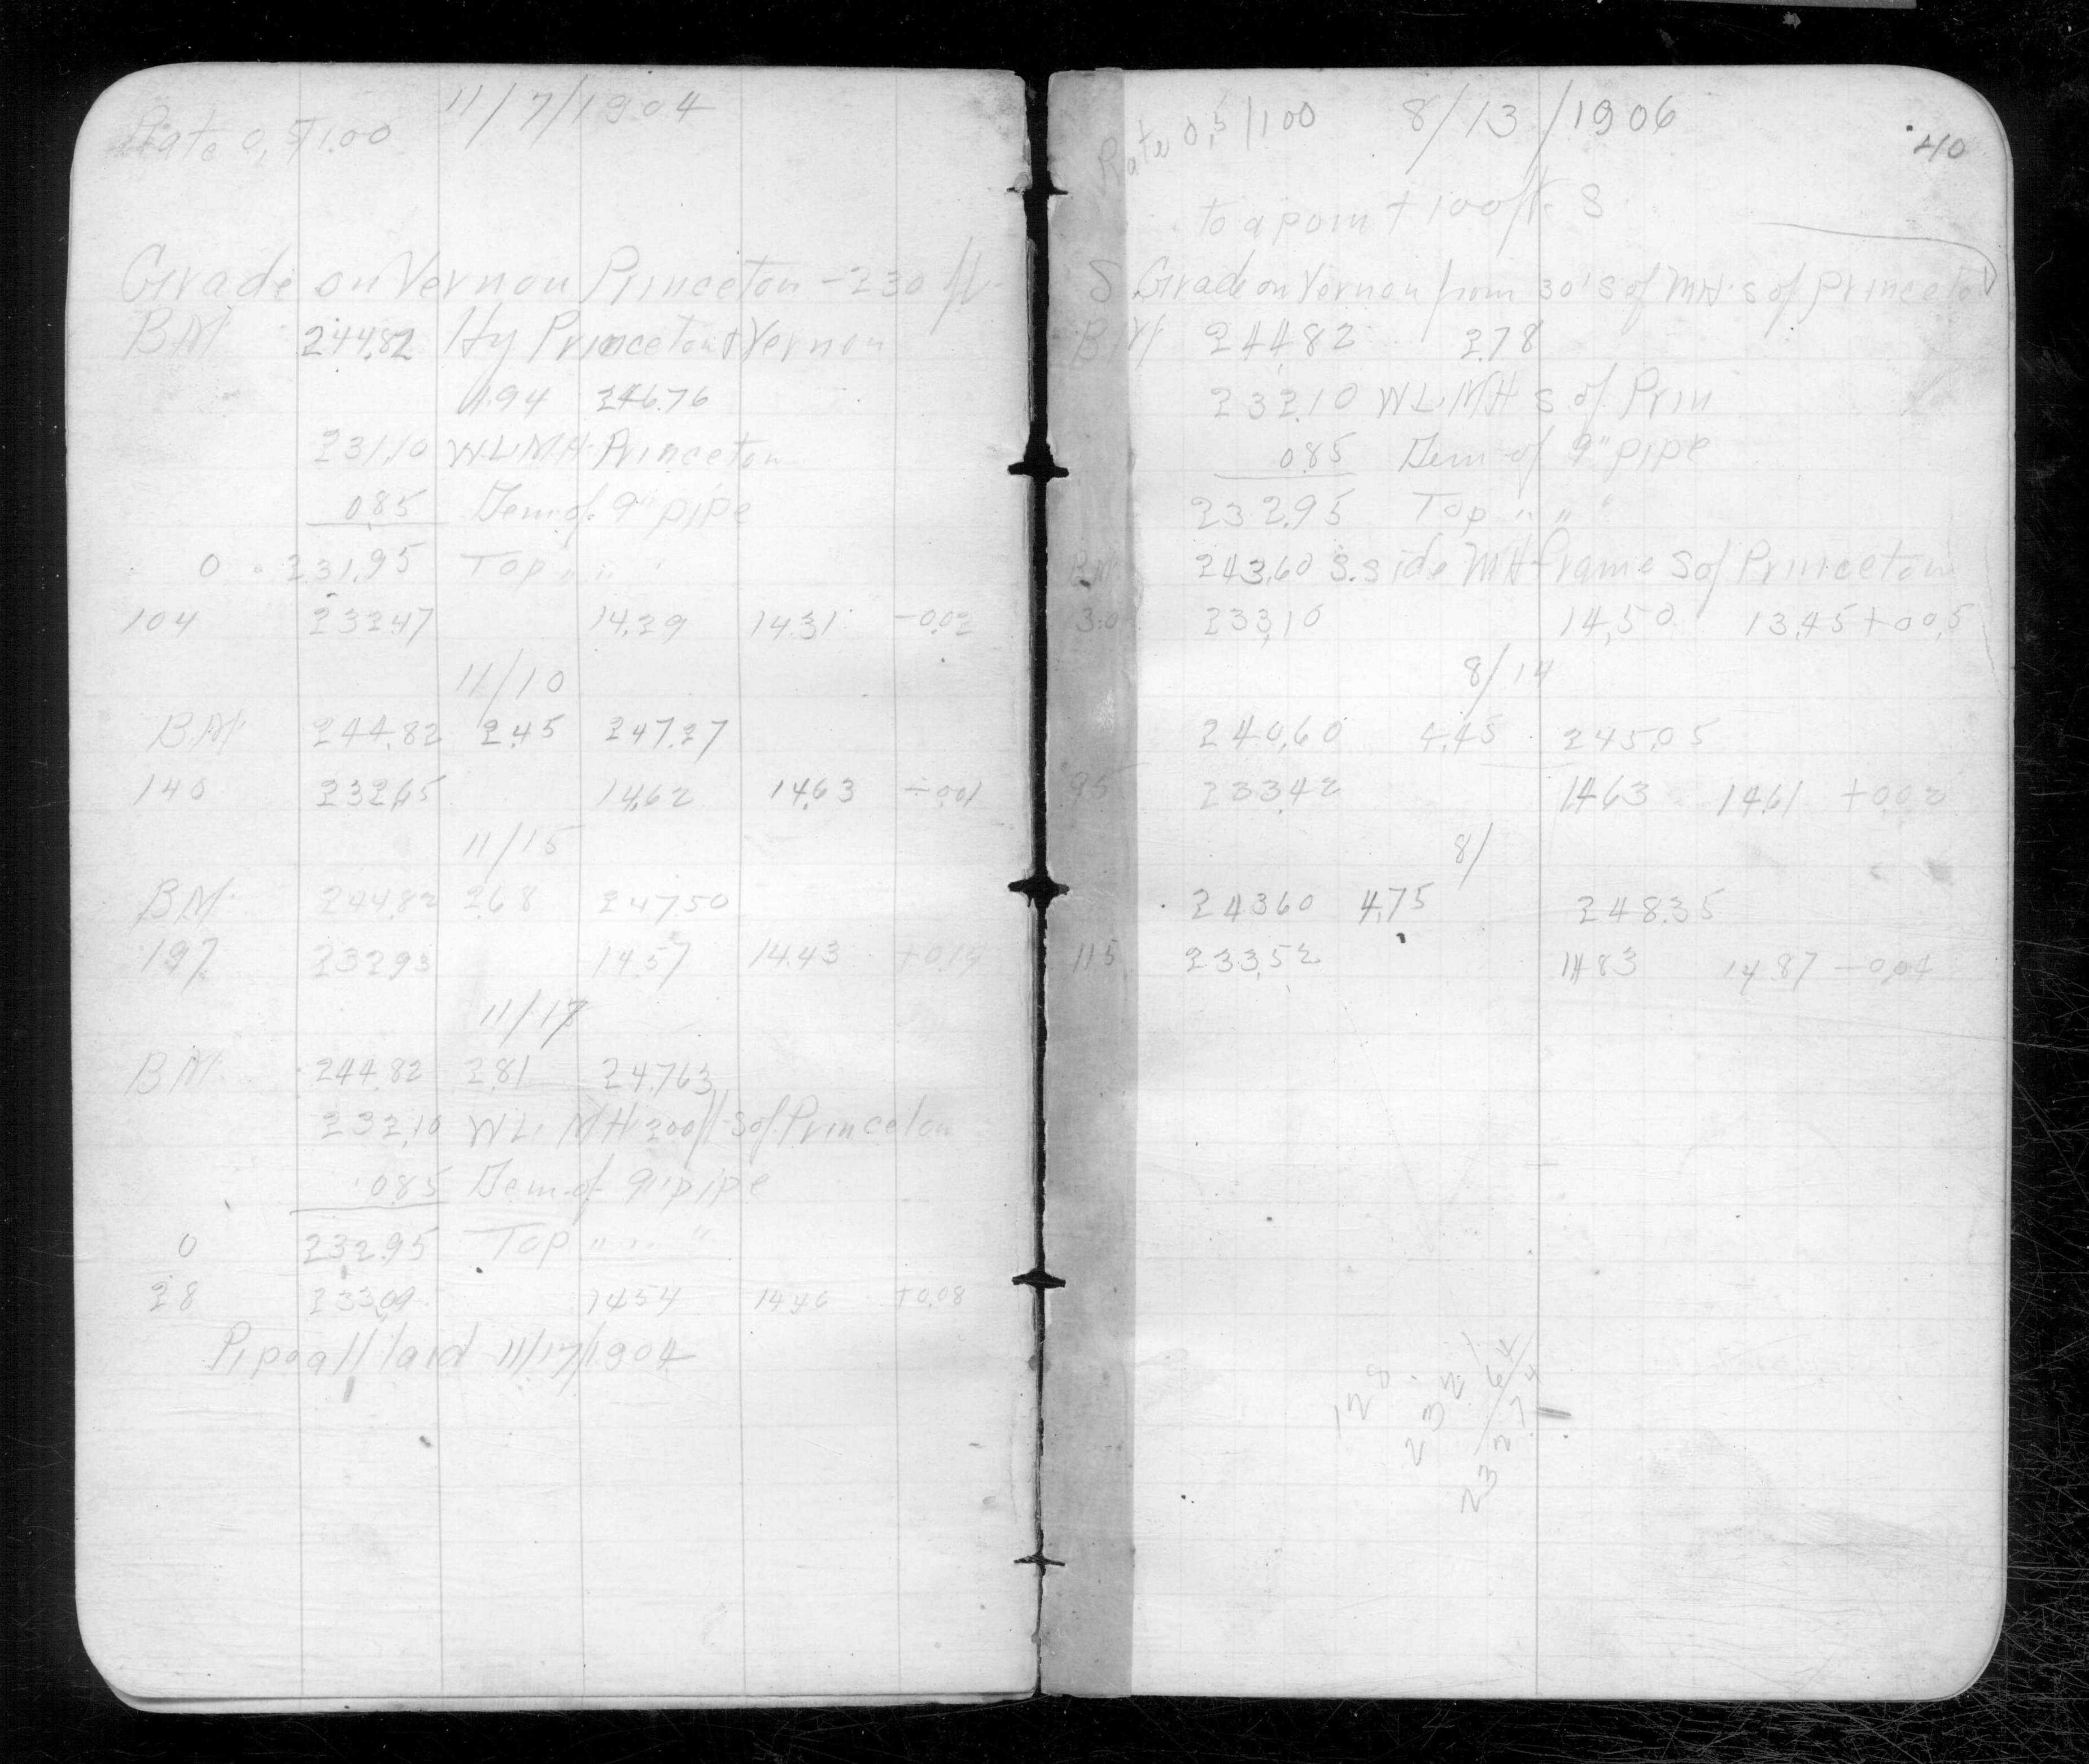 11/7/1904
Rate 0.5/100
Grade on Vernon Princeton - 230 ft.
BM 244.82 Hy Princeton & Vernon
1.94 246.76
231.10 WL. MH. Princeton
0.85 Dem. of 9" pipe
0 231.95 Top " " "
104 232.47 14.29 14.31 -0.02
11/10
BM 244.82 2.45 247.27
140 232.65 14.62 14.63 -0.01
11/15
BM. 244.82 2.68 247.50
197 232.93 14.57 14.43 +0.14
11/17
BM. 244.82 2.81 247.63
232.10 WL. MH 200 ft S of Princeton
0.85 Dem. of 9" pipe
0 232.95 Top " " "
28 233.09 14.54 14.46 +0.08
Pipe all laid 11/17/1904
Rate 0.5/100 8/13/1906
40
to a point 100 ft. S
S Grade on Vernon from 30' S of MH. S of Princeton
BM 244.82 2.78
232.10 WL. MH S of Prin
0.85 Dem of 9" pipe
232.95 Top " " "
BM 243.60 S. side MH frame S of Princeton
30 233.10 14.50 13.45 +00.5
8/14
240.60 4.45 245.05
95 233.42 14.63 14.61 +0.02
8/
243.60 4.75 248.35
115 233.52 14.83 14.87 -0.04
128